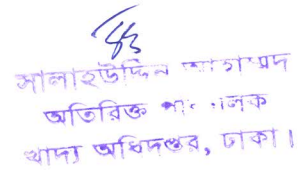 সালাহউদ্দিন আহাম্মদ
অতিরিক্ত পরিচালক
খাদ্য অধিদপ্তর, ঢাকা।